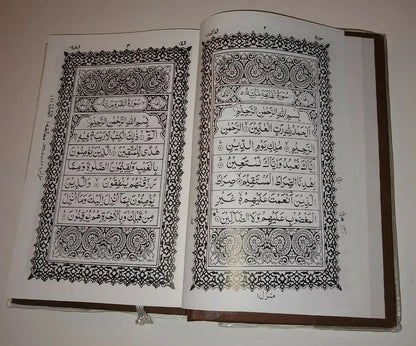 سُوْرَةُ الْفَاتِحَةِ مَكِّيَّةٌ
بِسْمِ اللّٰهِ الرَّحْمٰنِ الرَّحِيْمِ
اَلْحَمْدُ لِلّٰهِ رَبِّ الْعٰلَمِيْنَ الرَّحْمٰنِ
الرَّحِيْمِ مٰلِكِ يَوْمِ الدِّيْنِ
اِيَّاكَ نَعْبُدُ وَاِيَّاكَ نَسْتَعِيْنُ
اِهْدِنَا الصِّرَاطَ الْمُسْتَقِيْمَ صِرَاطَ
الَّذِيْنَ اَنْعَمْتَ عَلَيْهِمْ غَيْرِ
الْمَغْضُوْبِ عَلَيْهِمْ وَلَا الضَّآلِّيْنَ
منزل ١
٣
سُوْرَةُ الْبَقَرَةِ مَدَنِيَّةٌ
بِسْمِ اللّٰهِ الرَّحْمٰنِ الرَّحِيْمِ
الٓمّٓ ذٰلِكَ الْكِتٰبُ لَا رَيْبَ فِيْهِ
هُدًى لِّلْمُتَّقِيْنَ الَّذِيْنَ يُؤْمِنُوْنَ
بِالْغَيْبِ وَيُقِيْمُوْنَ الصَّلٰوةَ وَمِمَّا
رَزَقْنٰهُمْ يُنْفِقُوْنَ وَالَّذِيْنَ
يُؤْمِنُوْنَ بِمَآ اُنْزِلَ اِلَيْكَ وَمَآ اُنْزِلَ
مِنْ قَبْلِكَ وَبِالْاٰخِرَةِ هُمْ يُوْقِنُوْنَ